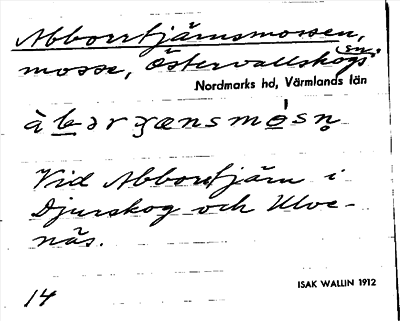 Abborrtjärnsmossen,
mosse, Östervallskogs sn.
Nordmarks hd, Värmlands län
Vid Abborrtjärn i
Djurskog och Ulve-
näs.
ISAK WALLIN 1912
14